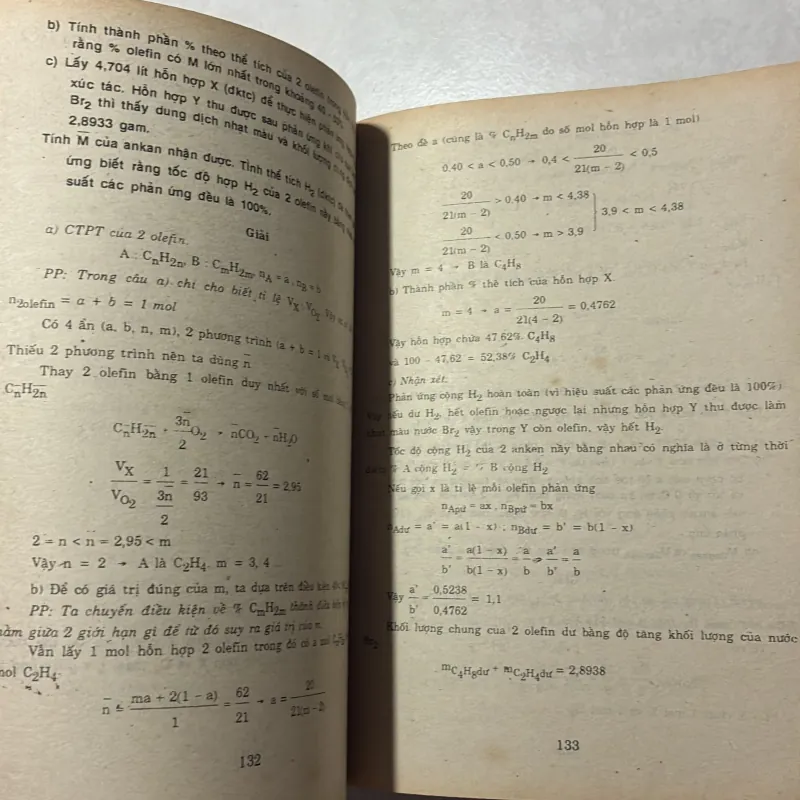 b) Tính thành phần % theo thể tích của 2 olefin trong
rằng % olefin có M lớn nhất trong khoảng 40 - 50%
c) Lấy 4,704 lít hỗn hợp X (đktc) để thực hiện phản ứng
xúc tác. Hỗn hợp Y thu được sau phản ứng khi
Br2 thì thấy dung dịch nhạt màu và khối lượng
2,8933 gam.
Tính M̅ của ankan nhận được. Tính thể tích H2 (đktc)
ứng biết rằng tốc độ hợp H2 của 2 olefin này bằng
suất các phản ứng đều là 100%.
Giải
a) CTPT của 2 olefin.
A : CnH2n, B : CmH2m, nA = a, nB = b
PP: Trong câu a) chỉ cho biết tỉ lệ VX : VO2
n2olefin = a + b = 1 mol
Có 4 ẩn (a, b, n, m), 2 phương trình (a + b = 1
Thiếu 2 phương trình nên ta dùng n̅
Thay 2 olefin bằng 1 olefin duy nhất với số mol
Cn̅H2n̅
Cn̅H2n̅ + 3n̅/2 O2 → n̅CO2 + n̅H2O
VX/VO2 = 1/(3n̅/2) = 21/93 → n̅ = 62/21 = 2,95
2 = n < n̅ = 2,95 < m
Vậy n = 2 → A là C2H4. m = 3, 4
b) Để có giá trị đúng của m, ta dựa trên điều kiện
PP: Ta chuyển điều kiện về % CmH2m thành điều kiện
nằm giữa 2 giới hạn gì để từ đó suy ra giá trị của n.
Vẫn lấy 1 mol hỗn hợp 2 olefin trong đó có a mol
mol C2H4.
n̅ = (ma + 2(1 - a))/1 = 62/21 → a = 20/21(m - 2)
132
Theo đề a (cũng là % CnH2m do số mol hỗn hợp là 1 mol)
0,40 < a < 0,50 → 0,4 < 20/21(m - 2) < 0,5
20/21(m - 2) > 0,40 → m < 4,38
20/21(m - 2) < 0,50 → m > 3,9 } 3,9 < m < 4,38
Vậy m = 4 → B là C4H8
b) Thành phần % thể tích của hỗn hợp X.
m = 4 → a = 20/21(4 - 2) = 0,4762
Vậy hỗn hợp chứa 47,62% C4H8
và 100 - 47,62 = 52,38% C2H4
c) Nhận xét.
Phản ứng cộng H2 hoàn toàn (vì hiệu suất các phản ứng đều là 100%)
nếu dư H2, hết olefin hoặc ngược lại nhưng hỗn hợp Y thu được làm
nhạt màu nước Br2 vậy trong Y còn olefin, vậy hết H2.
Tốc độ cộng H2 của 2 anken này bằng nhau có nghĩa là ở từng thời
điểm % A cộng H2 = % B cộng H2
Nếu gọi x là tỉ lệ mỗi olefin phản ứng
nApứ = ax, nBpứ = bx
nAdư = a' = a(1 - x), nBdư = b' = b(1 - x)
a'/b' = a(1 - x)/b(1 - x) = a/b ⇒ a'/b' = a/b
Vậy a'/b' = 0,5238/0,4762 = 1,1
Khối lượng chung của 2 olefin dư bằng độ tăng khối lượng của nước
Br2
mC4H8dư + mC2H4dư = 2,8938
133